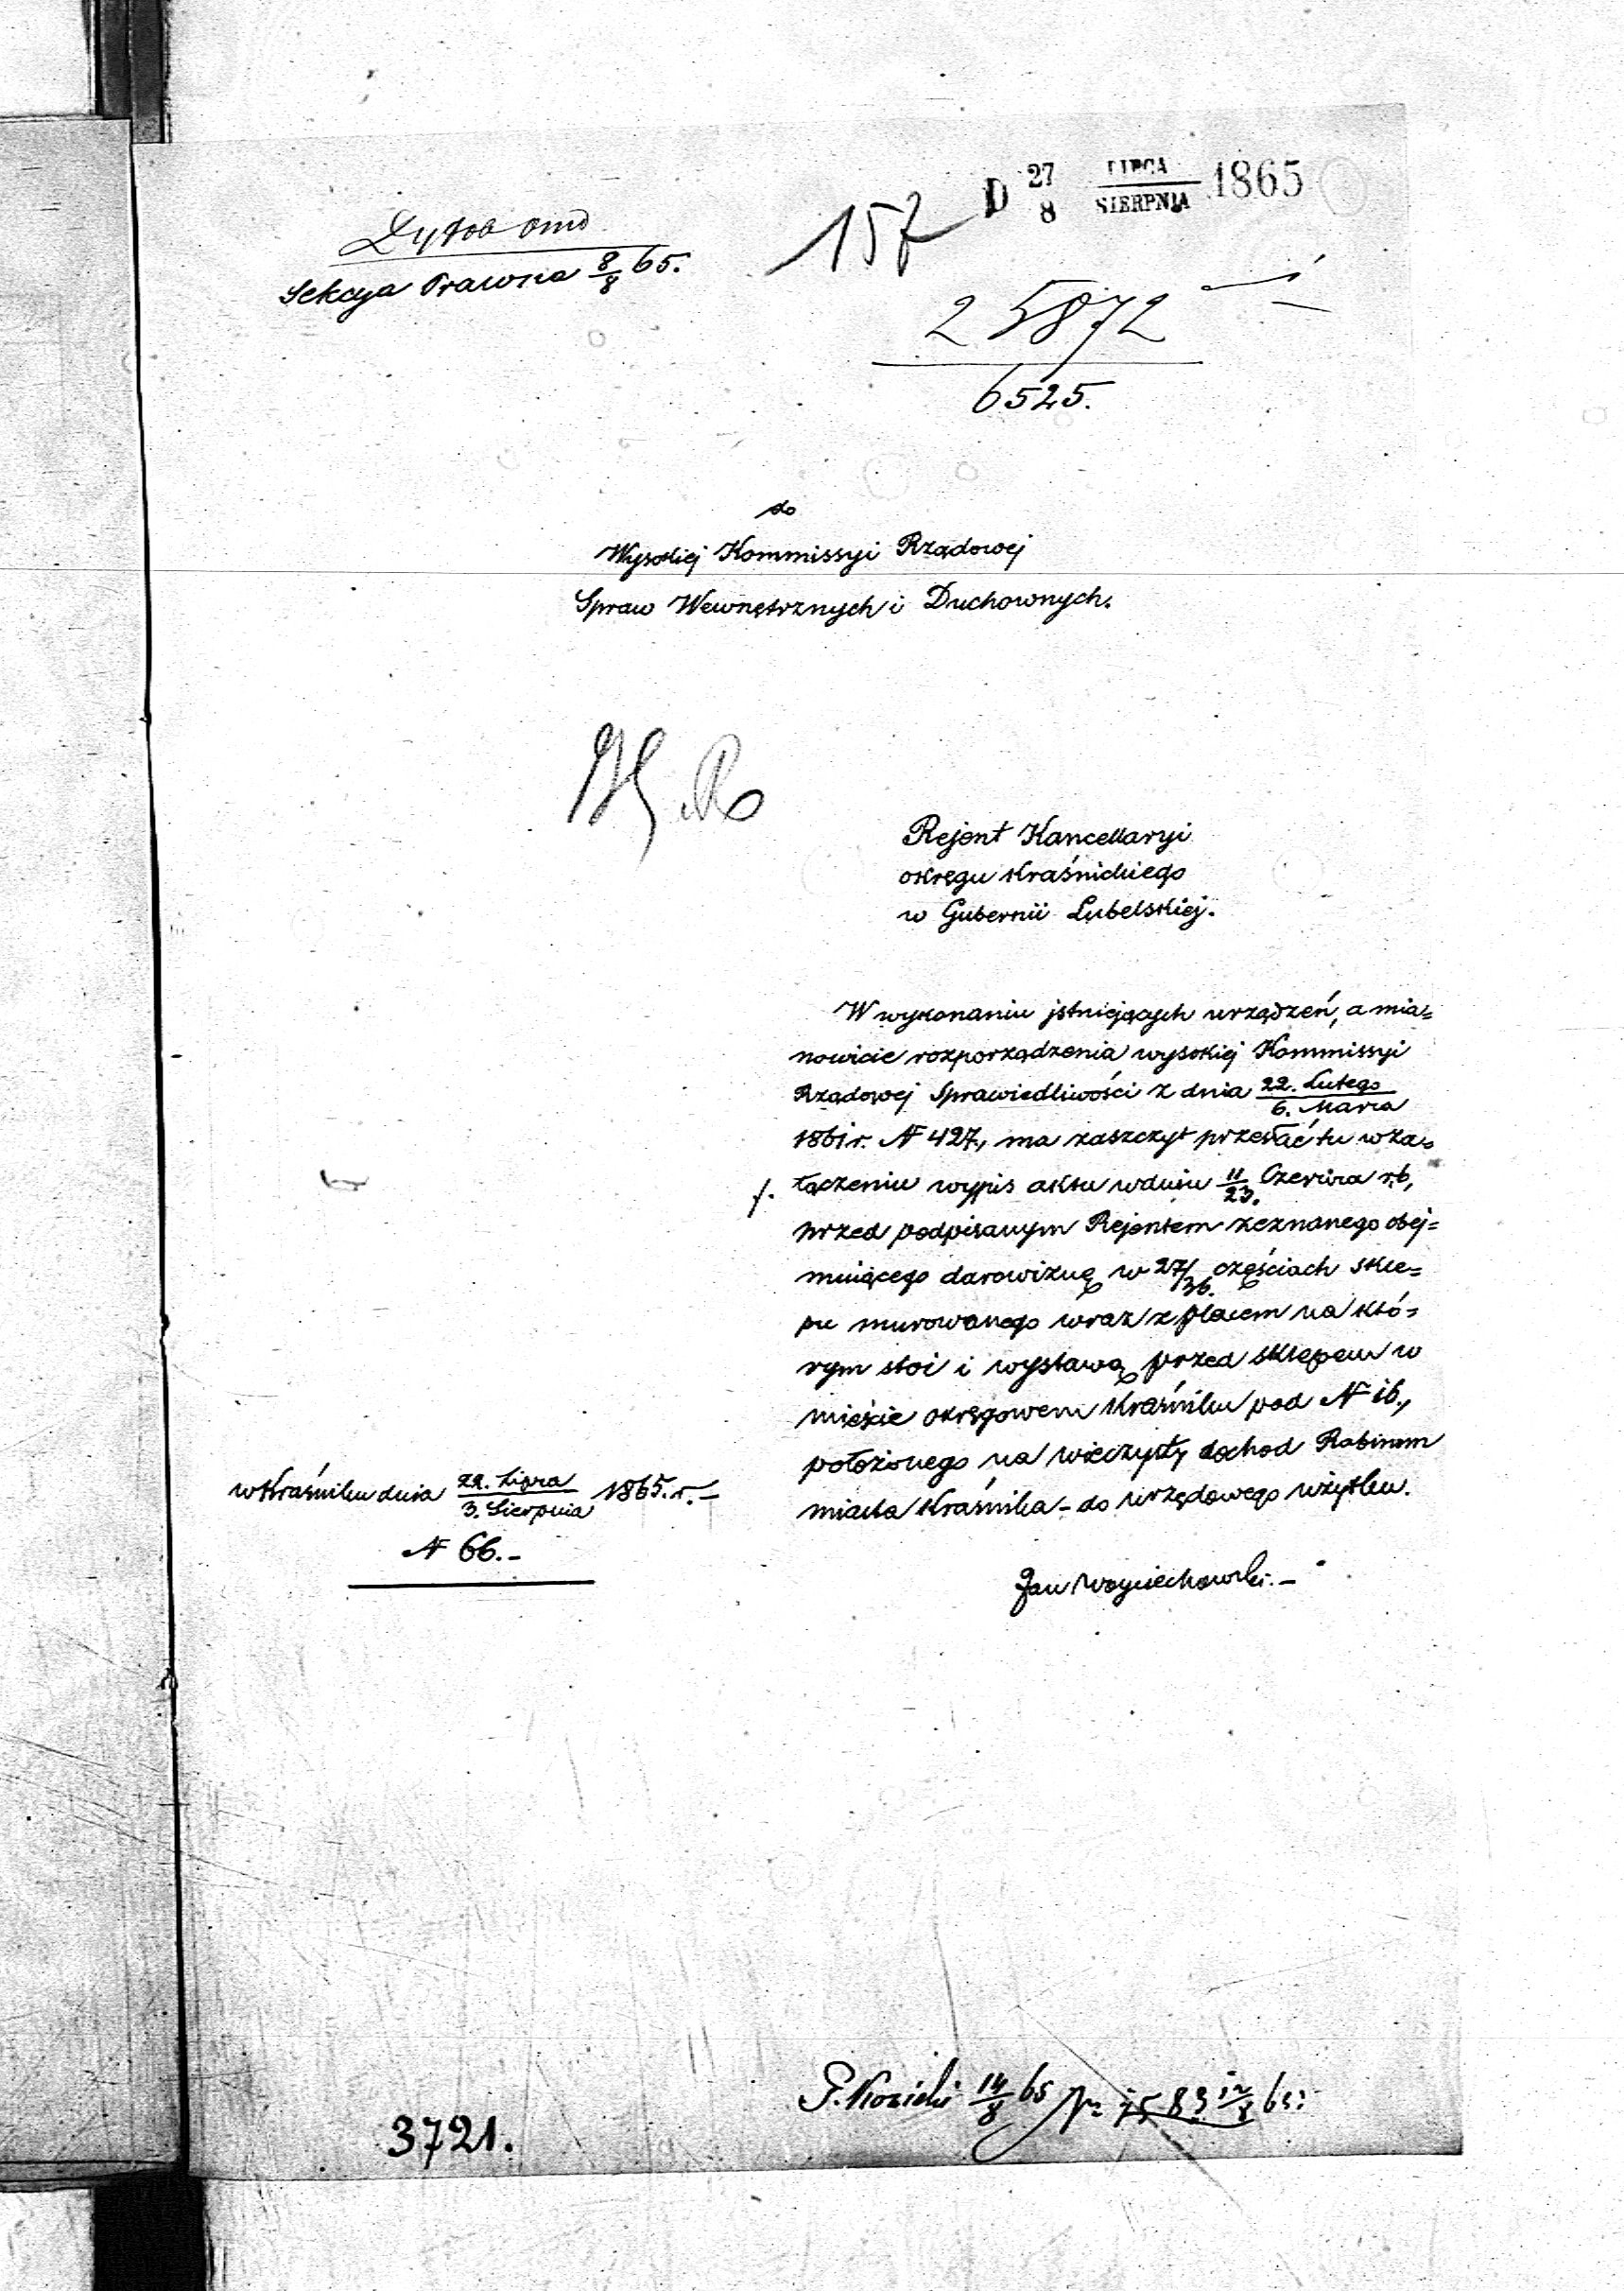 D 27/8 LIPCA/SIERPNIA 1865
157
Sekcya Prawna 8/8 65.
25872
6525.
do
Wysokiej Kommissyi Rządowej
Spraw Wewnętrznych i Duchownych.
Rejent Kancellaryi
okręgu Kraśnickiego
w Gubernii Lubelskiej.
W wykonaniu jstniejących urządzeń, a mia=
nowicie rozporządzenia wysokiej Kommissyi
Rządowej Sprawiedliwości z dnia 22. Lutego/6. Marca
1861 r. N 427, ma zaszczyt przesłać tu w za=
łączeniu wypis aktu w dniu 11/23. Czerwca r.b,
przed podpisanym Rejentem zeznanego obej=
mującego darowiznę w 27/36. częściach skle=
pu murowanego wraz z placem na któ=
rym stoi i wystawą przed sklepem w
mieście okręgowem Kraśniku pod N 16.,
położonego na wieczysty dochod Rabinom
miasta Kraśnika - do urzędowego użytku.
w Kraśniku dnia 22. Lipca/3. Sierpnia 1865. r. -
N 66. -
Jan Woyciechowski. -
3721.
14/8 65